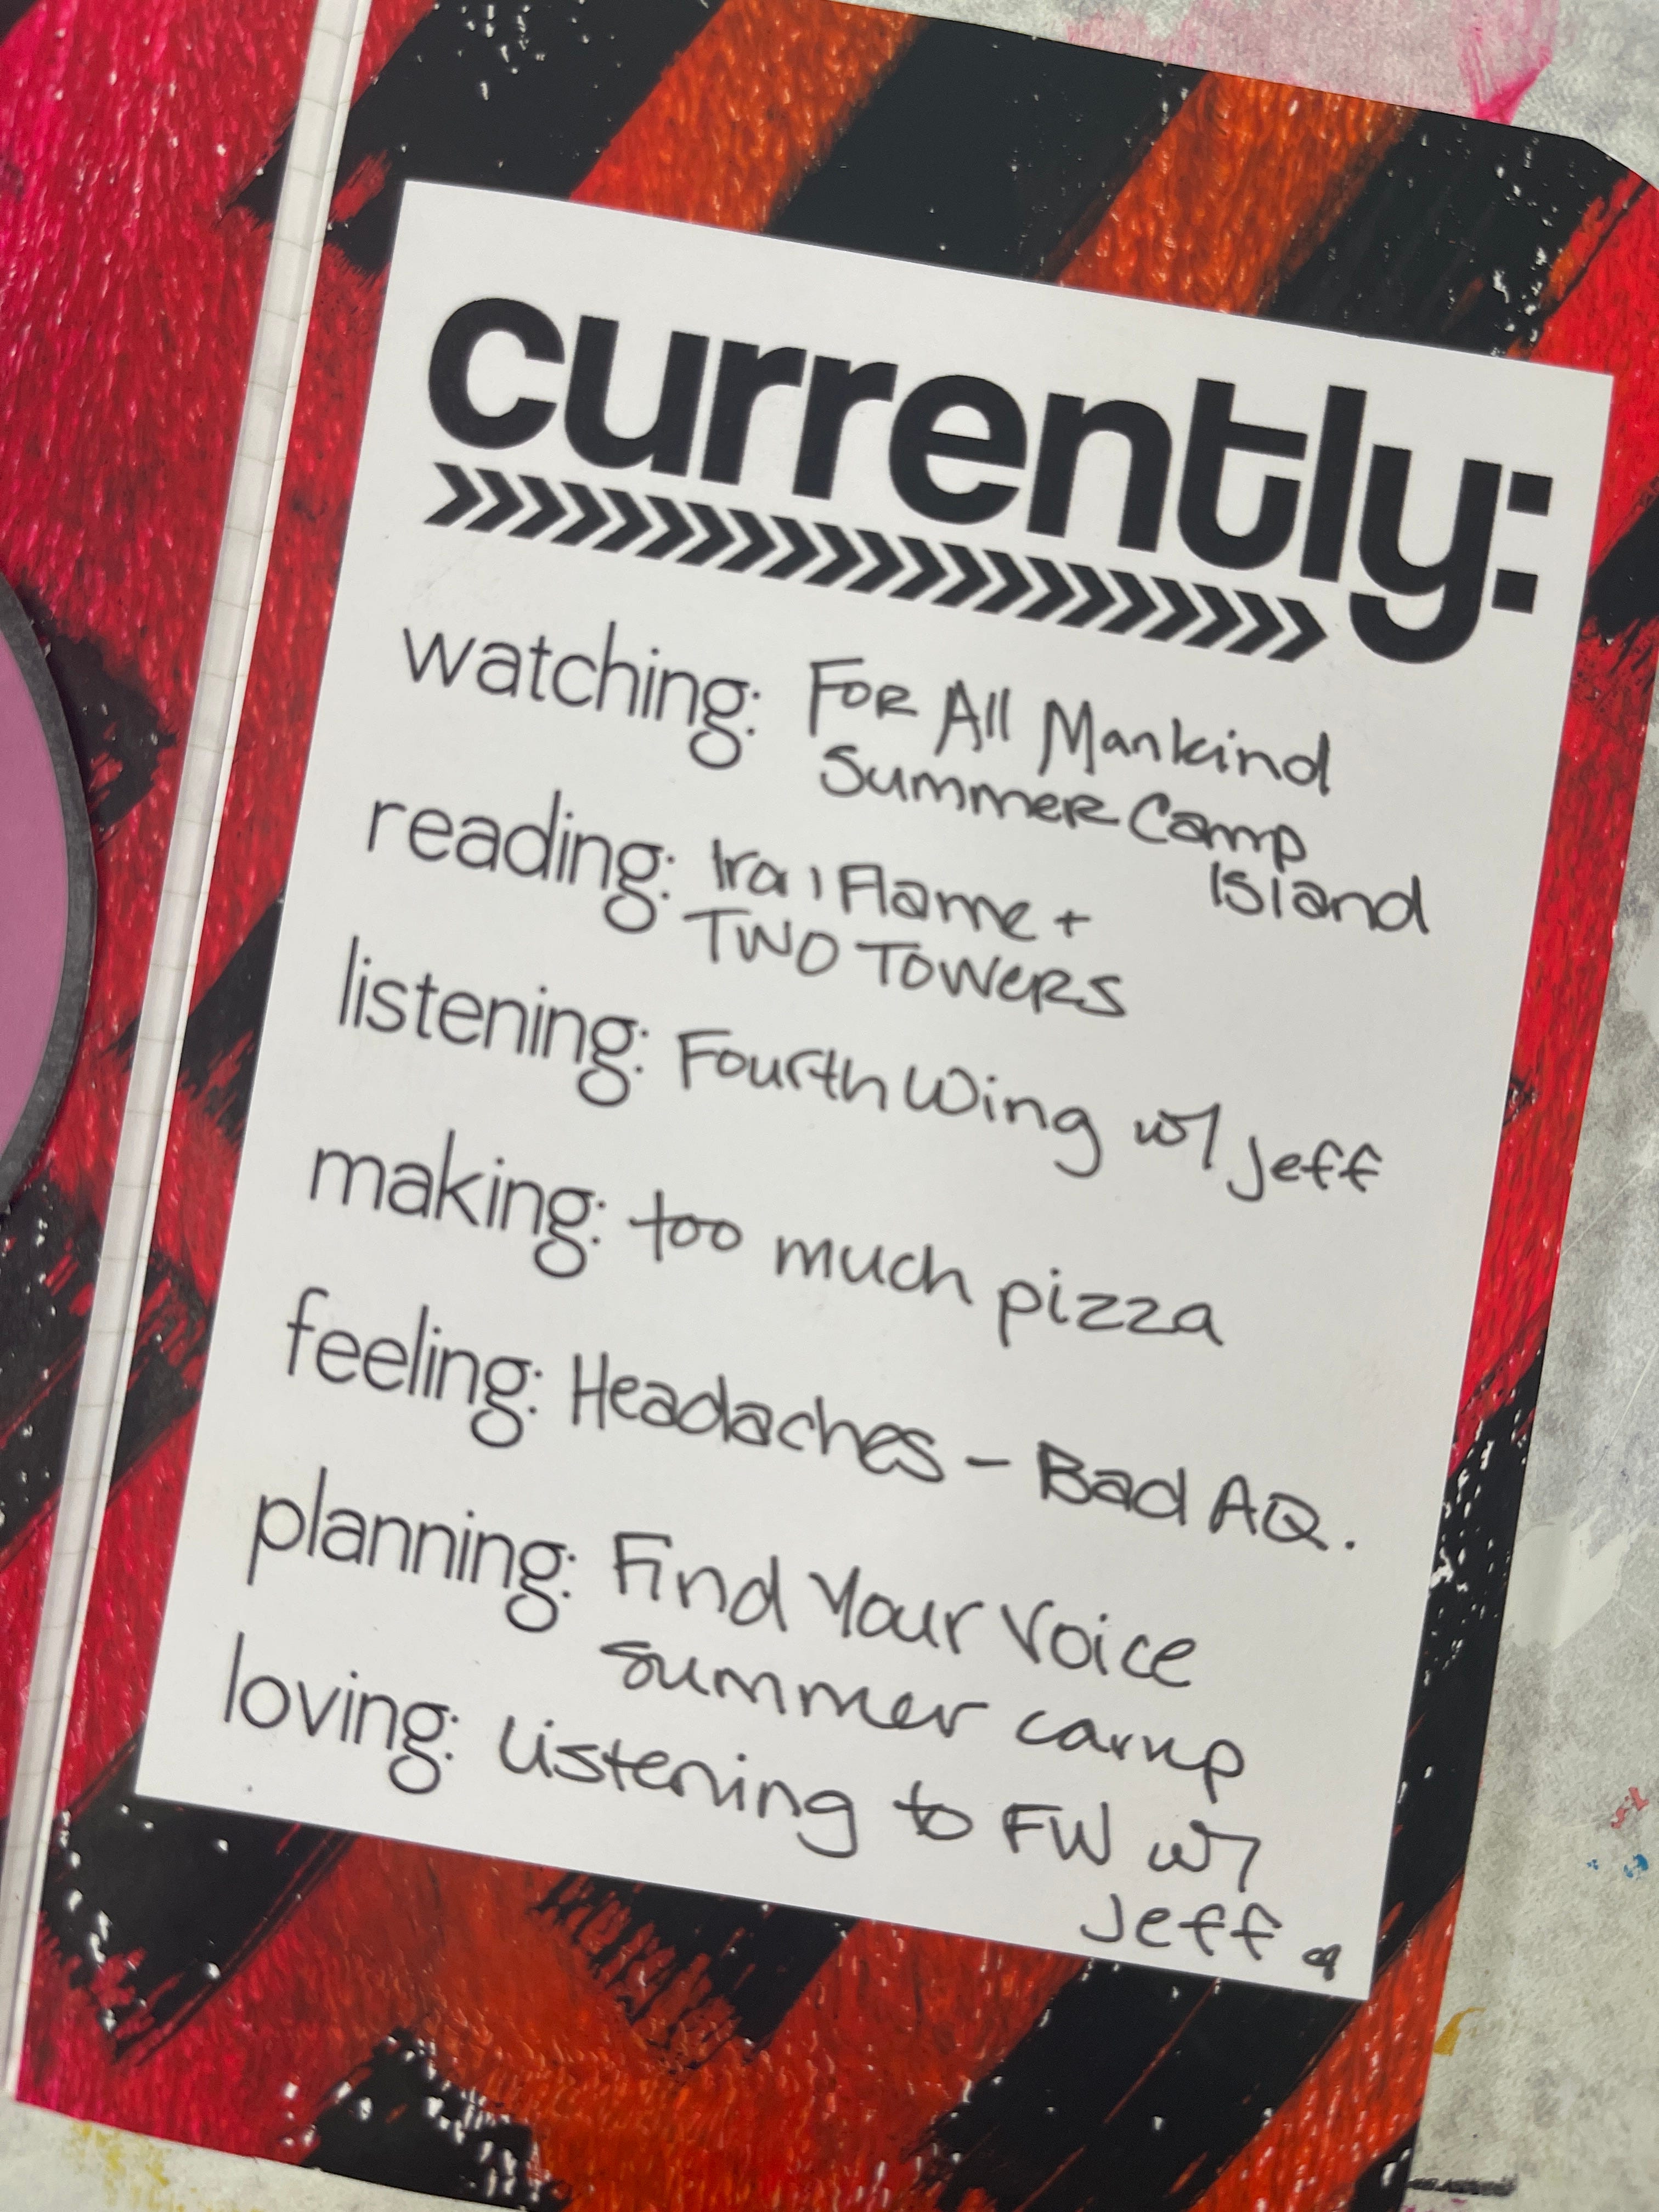 currently:
watching: FOR All Mankind
Summer Camp
Island
reading: Flame +
TWO TOWERS
listening: Fourth Wing w/ Jeff
making: too much pizza
feeling: Headaches - Bad AQ.
planning: Find Your Voice
summer camp
loving: Listening to FW w/
Jeff